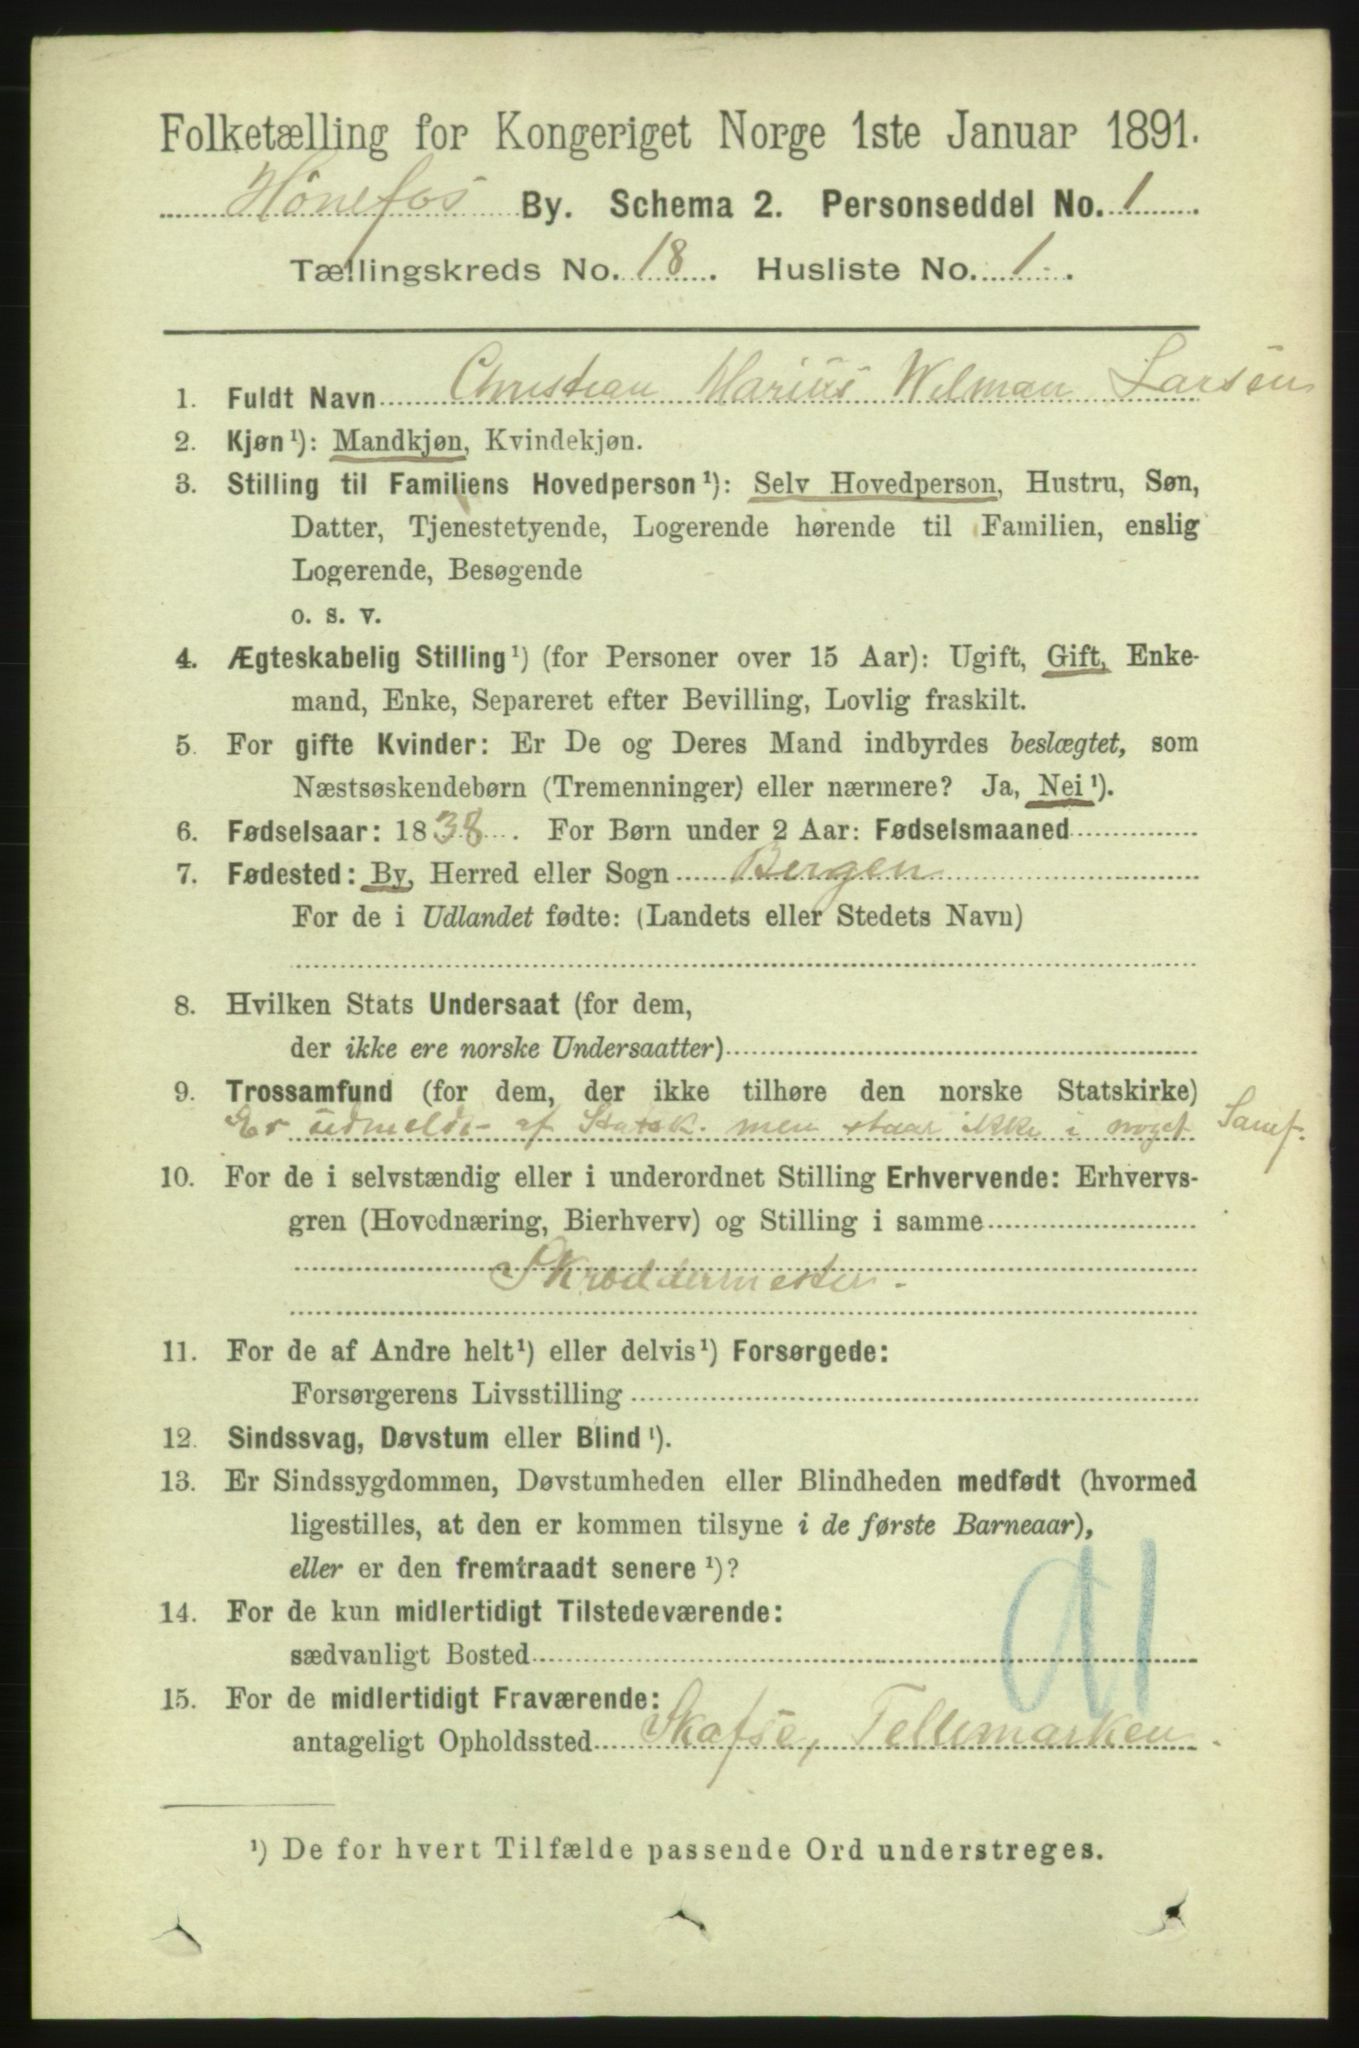 Folketælling for Kongeriget Norge 1ste Januar 1891.
Hønefos By. Schema 2. Personseddel No. 1
Tællingskreds No. 18. Husliste No. 1.
1. Fuldt Navn Christian Marius Welman Larsen
2. Kjøn¹): Mandkjøn, Kvindekjøn.
3. Stilling til Familiens Hovedperson¹): Selv Hovedperson, Hustru, Søn,
Datter, Tjenestetyende, Logerende hørende til Familien, enslig
Logerende, Besøgende
o. s. v.
4. Ægteskabelig Stilling¹) (for Personer over 15 Aar): Ugift, Gift, Enke-
mand, Enke, Separeret efter Bevilling, Lovlig fraskilt.
5. For gifte Kvinder: Er De og Deres Mand indbyrdes beslægtet, som
Næstsøskendebørn (Tremenninger) eller nærmere? Ja, Nei¹).
6. Fødselsaar: 1838. For Børn under 2 Aar: Fødselsmaaned
7. Fødested: By, Herred eller Sogn Bergen
For de i Udlandet fødte: (Landets eller Stedets Navn)
8. Hvilken Stats Undersaat (for dem,
der ikke ere norske Undersaatter)
9. Trossamfund (for dem, der ikke tilhøre den norske Statskirke)
Er udmeldt af Statsk. men staar ikke i noget Samf.
10. For de i selvstændig eller i underordnet Stilling Erhvervende: Erhvervs-
gren (Hovednæring, Bierhverv) og Stilling i samme
Skræddermester.
11. For de af Andre helt¹) eller delvis¹) Forsørgede:
Forsørgerens Livsstilling
12. Sindssvag, Døvstum eller Blind¹).
13. Er Sindssygdommen, Døvstumheden eller Blindheden medfødt (hvormed
ligestilles, at den er kommen tilsyne i de første Barneaar),
eller er den fremtraadt senere¹)?
14. For de kun midlertidigt Tilstedeværende:
sædvanligt Bosted
15. For de midlertidigt Fraværende:
antageligt Opholdssted Skafse, Tellemarken.
¹) De for hvert Tilfælde passende Ord understreges.